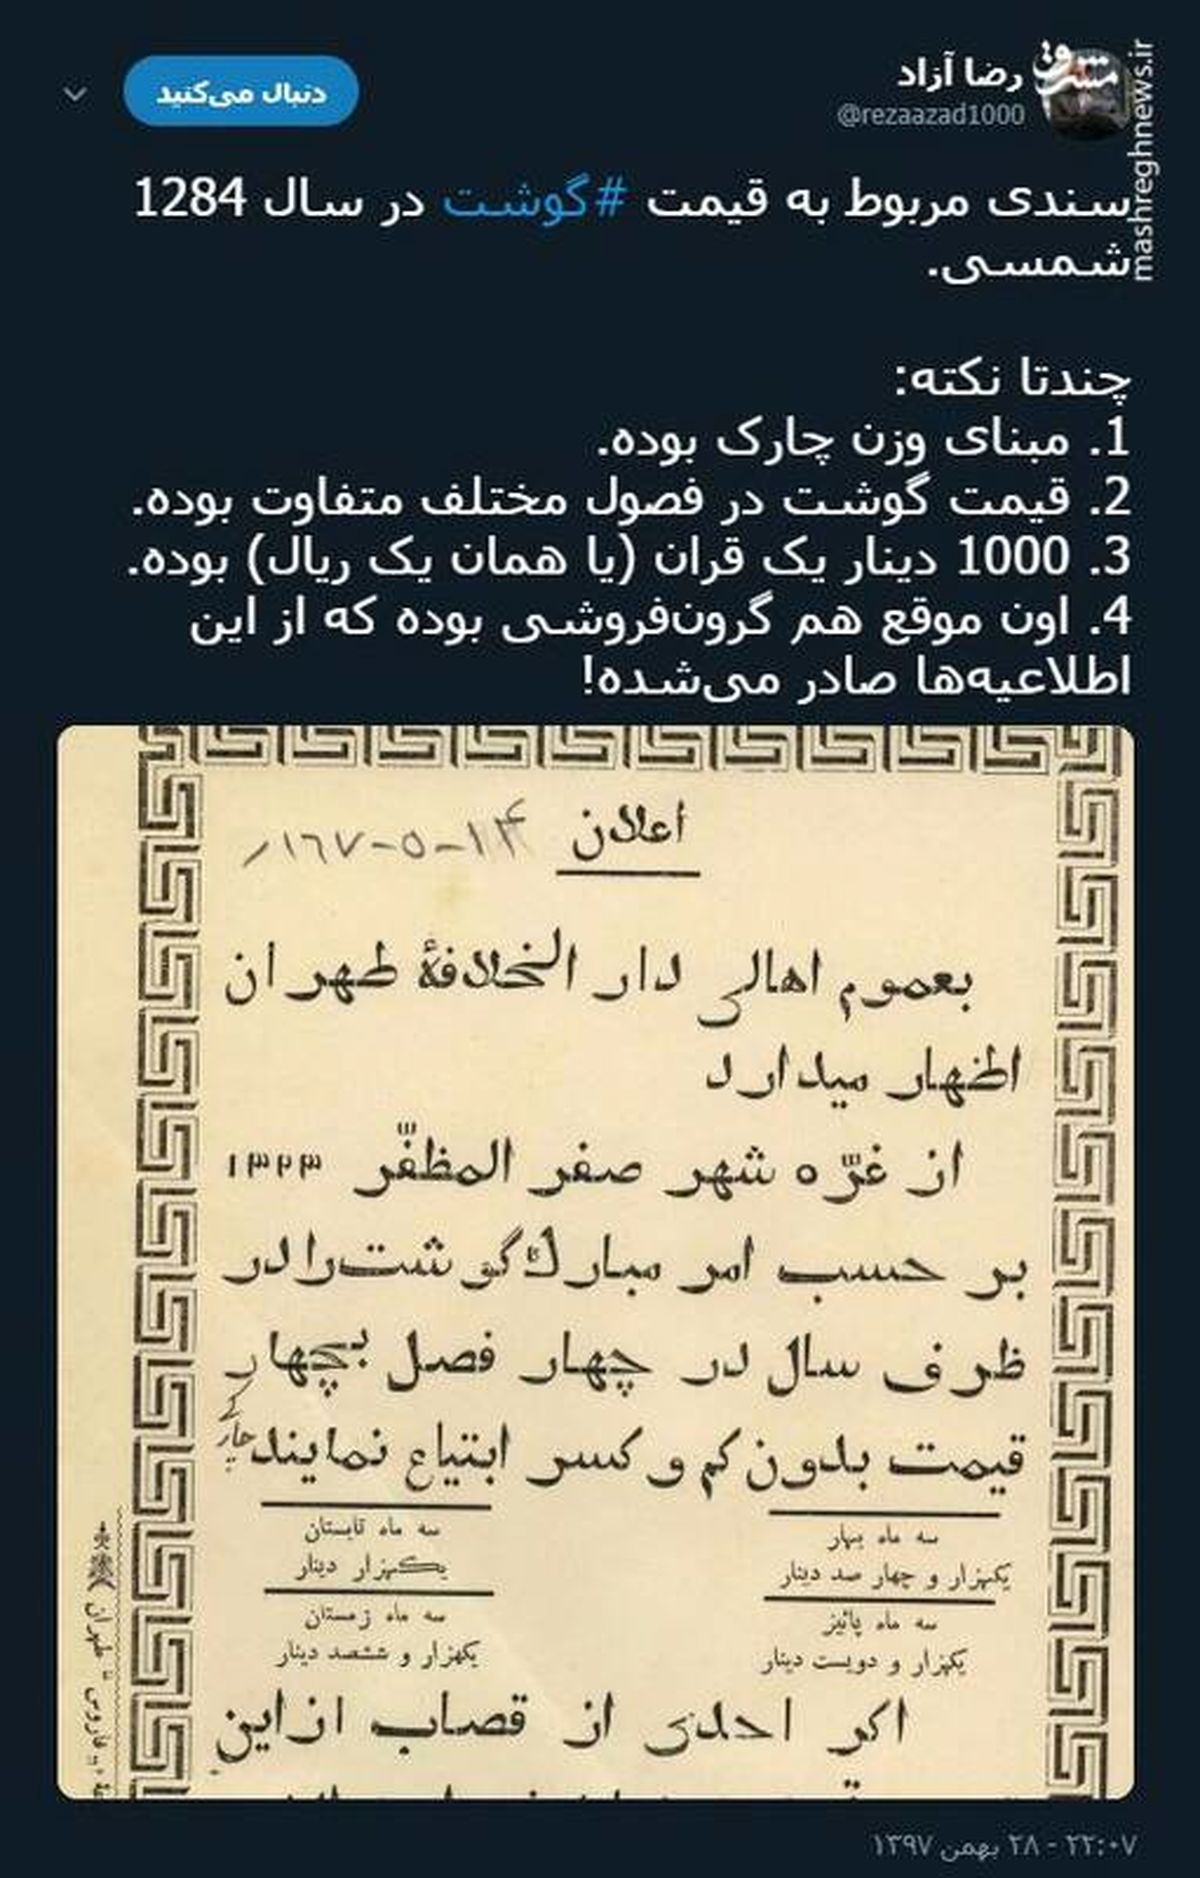 رضا آزاد
@rezaazad1000
دنبال می‌کنید
مشرق
mashreghnews.ir
سندی مربوط به قیمت #گوشت در سال 1284
شمسی.
چندتا نکته:
1. مبنای وزن چارک بوده.
2. قیمت گوشت در فصول مختلف متفاوت بوده.
3. 1000 دینار یک قران (یا همان یک ریال) بوده.
4. اون موقع هم گرون‌فروشی بوده که از این
اطلاعیه‌ها صادر می‌شده!
اعلان
بعموم اهالی دار الخلافهٔ طهران
اظهار میدارد
از غرّه شهر صفر المظفّر ۱۳۲۳
بر حسب امر مبارك گوشت را در
ظرف سال در چهار فصل بچهار
قیمت بدون کم و کسر ابتیاع نمایند
چارکے
سه ماه بهار
یکهزار و چهار صد دینار
سه ماه تابستان
یکهزار دینار
سه ماه پائیز
یکهزار و دویست دینار
سه ماه زمستان
یکهزار و ششصد دینار
اکر احدی از قصاب ازاین
فاروس طهران
۲۲:۰۷ - ۲۸ بهمن ۱۳۹۷